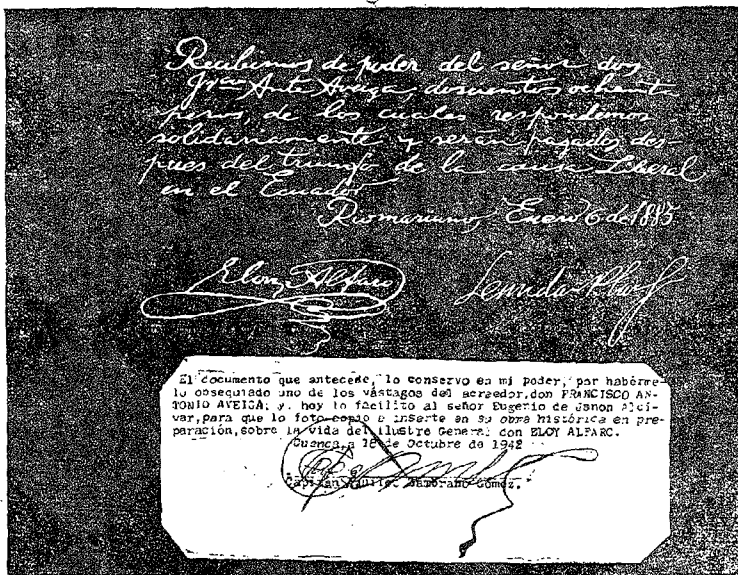 Recibimos de poder del señor don
Fran Anto Aveiga, doscientos ochent
pesos, de los cuales respondemos
solidariamente y serán pagados des-
pues del triunfo de la causa Liberal
en el Ecuador
Enero 6 de 1883
Eloy Alfaro
Leonidas Plaza
El documento que antecede, lo conservo en mi poder, por habérme-
lo obsequiado uno de los vástagos del acreedor, don FRANCISCO AN-
TONIO AVEIGA; y, hoy lo facilito al señor Eugenio de Janon Alcí-
var, para que lo foto-copie e inserte en su obra histórica en pre-
paración, sobre la vida del ilustre General don ELOY ALFARO.
Cuenca, a 18 de Octubre de 1942
Capitán Zambrano Gómez.